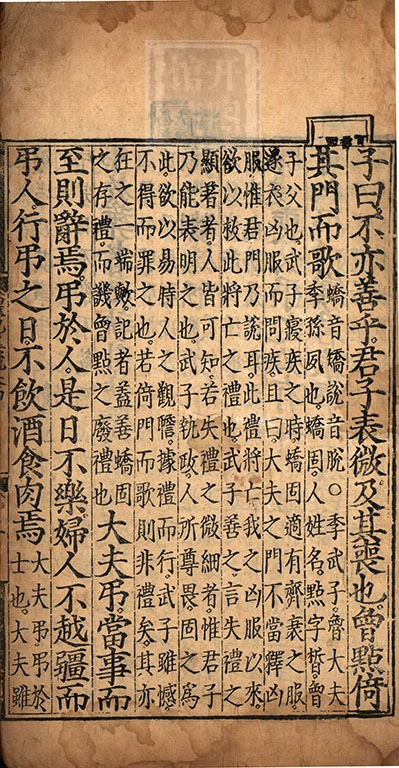 子曰。不亦善乎。君子表微。及其喪也。曾點倚
其門而歌
蟜音矯說音脫○季武子。魯大夫
季孫夙也。蟜固。人姓名。點字晳。曾
子父也。武子寢疾之時蟜固適有齊衰之服
遂衣凶服而問疾。且曰。大夫之門不當釋凶
服惟君門乃說耳此禮將亡我之凶服以來。
欲以救此將亡之禮也。武子善之。言失禮之
顯著者。人皆可知。若失禮之微細者。惟君子
乃能表明之也。武子執政。人所尊畏。固之爲
此。欲以易時人之觀瞻。據禮而行。武子雖憾
不得而罪之也。若倚門而歌則非禮矣。其亦
狂之一端歟。記者蓋善蟜固
之存禮。而譏曾點之廢禮也
大夫弔。當事而
至則辭焉。弔於人。是日不樂。婦人不越疆而
弔人行弔之日。不飲酒食肉焉
大夫弔。弔於
士也。大夫雖